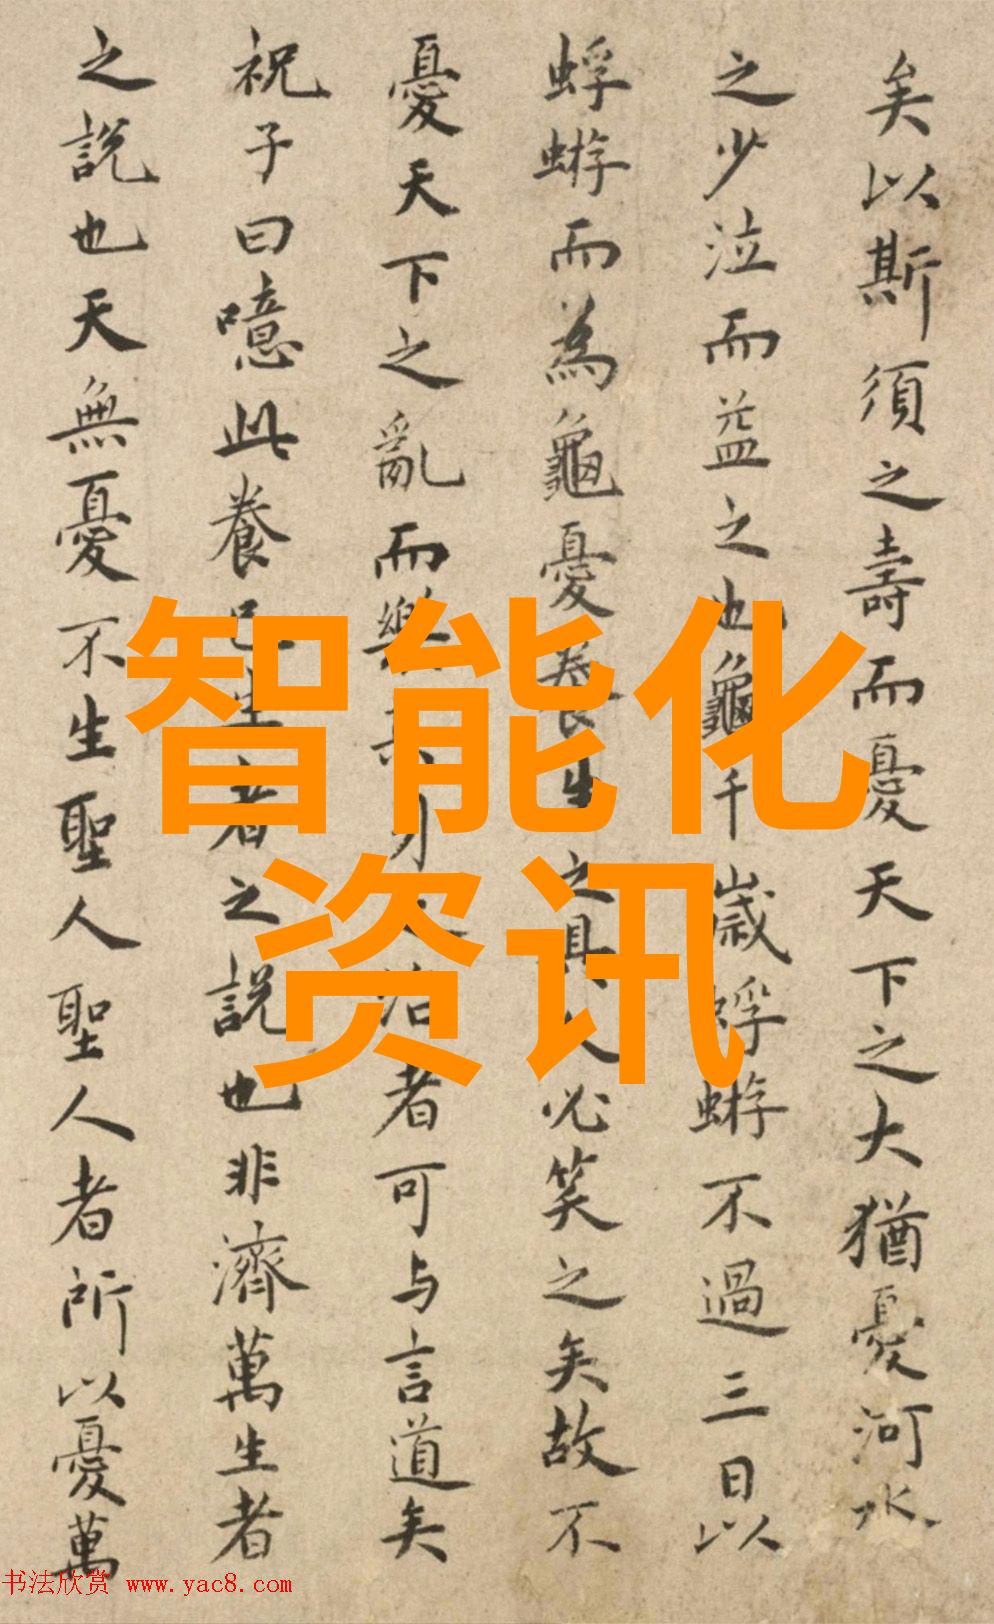 矣以斯須之壽而憂天下之大猶憂河水
之少泣而益之也龜千歲蜉蝣不過三日以
蜉蝣而為龜憂養生之具人必笑之矣故不
憂天下之亂而樂其身之治者可与言道矣
祝子曰噫此養己生者之説也非濟萬生者
之説也天無憂不生聖人聖人者所以憂萬
智能化
资讯
书法欣赏 www.yac8.com